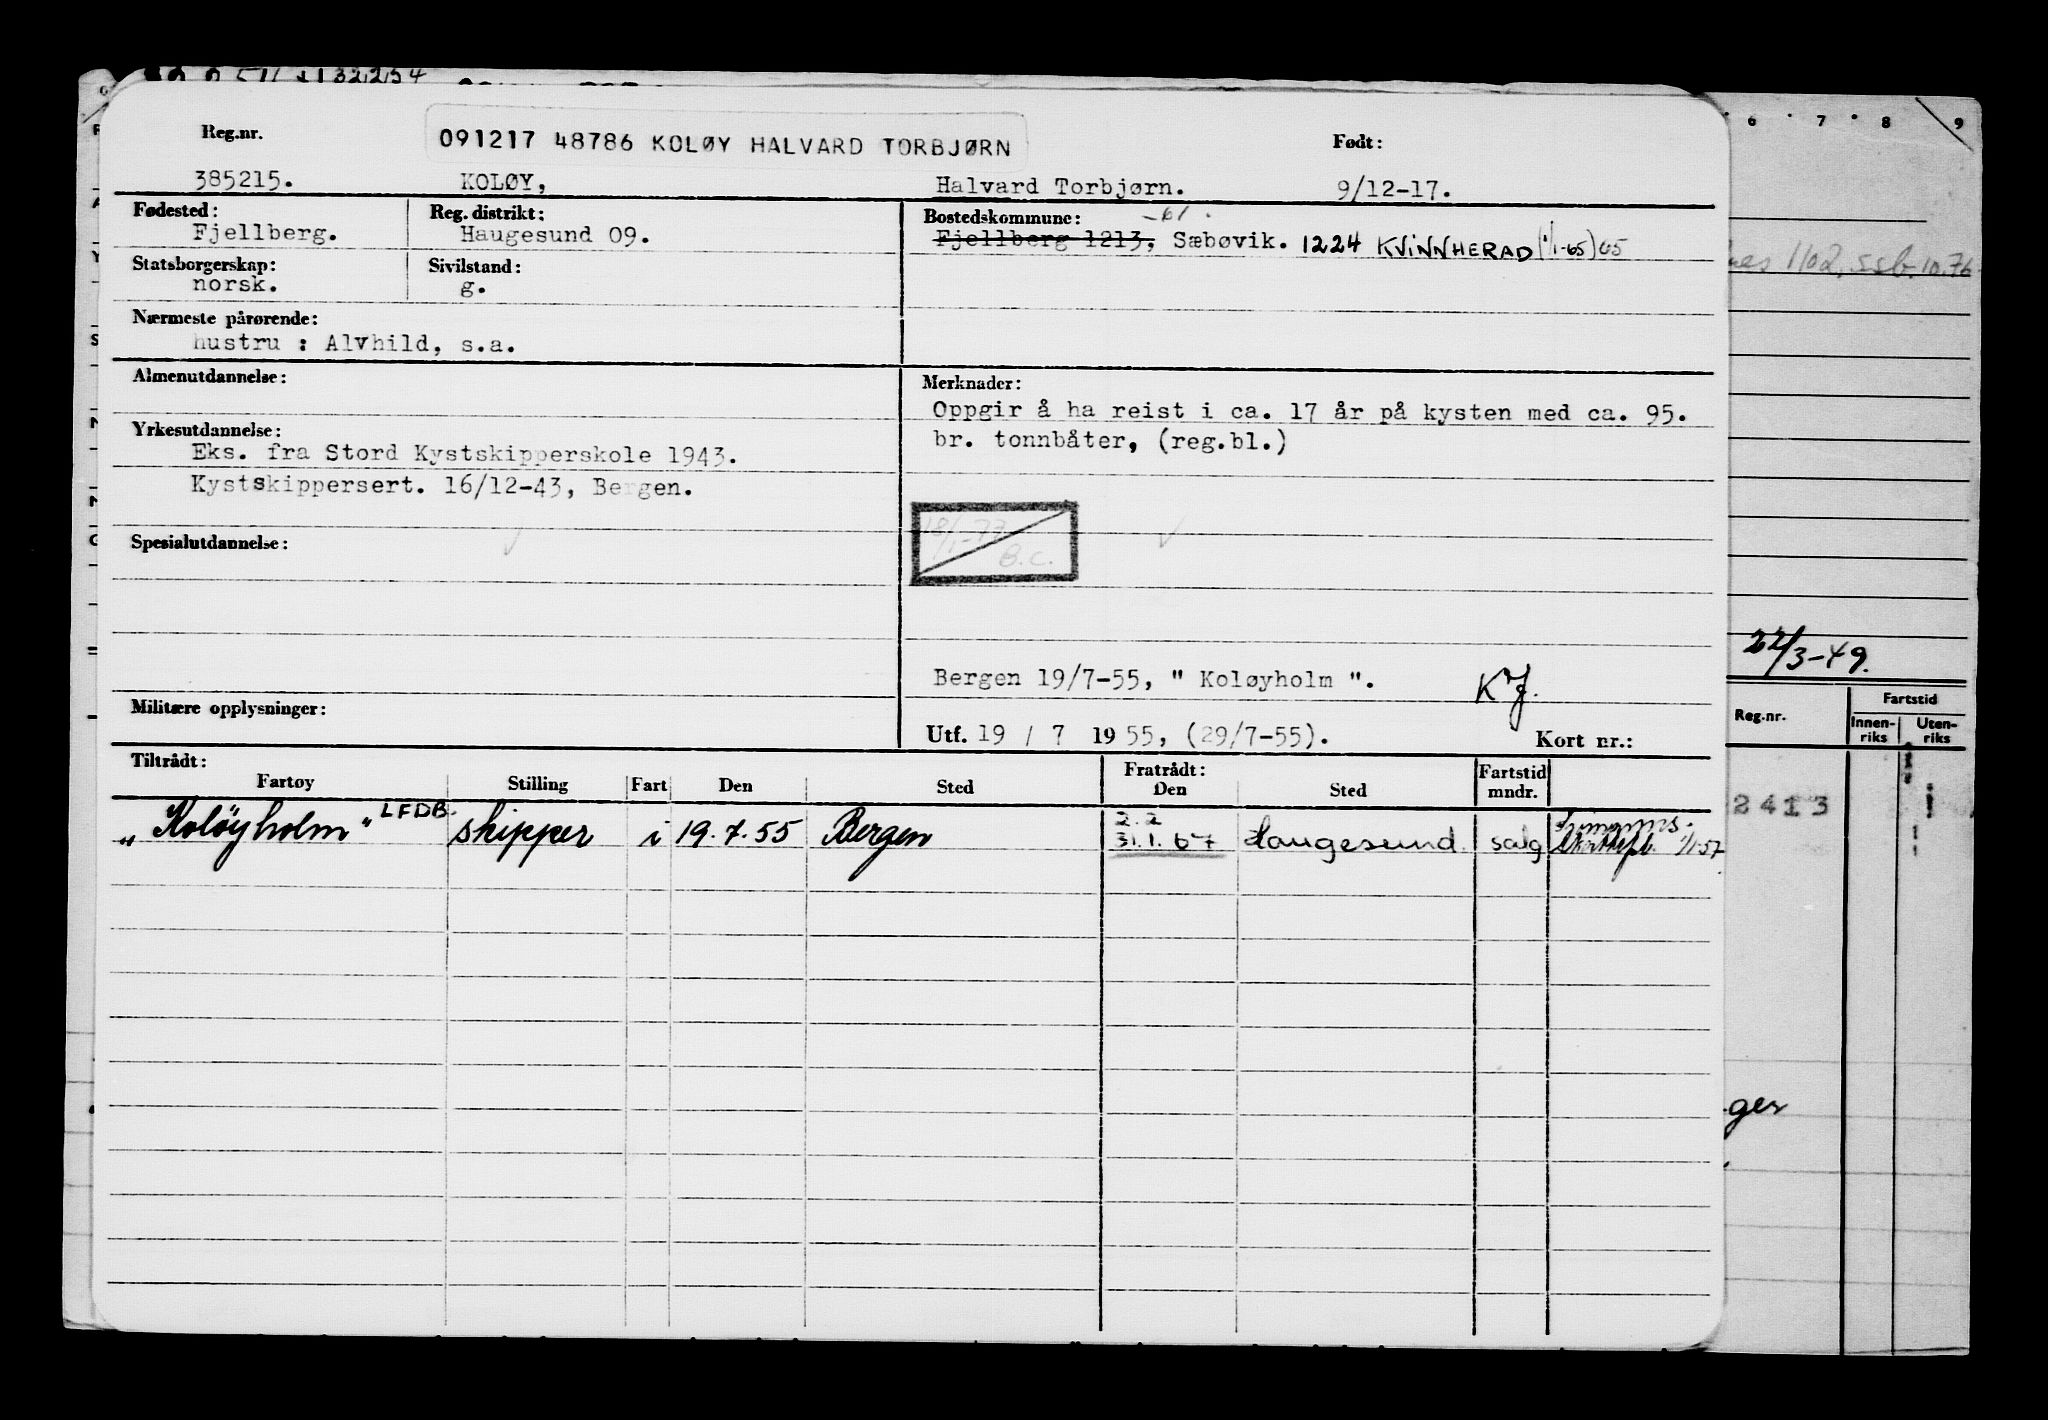 132254
6 7 8 9
Reg.nr. 091217 48786 KOLØY HALVARD TORBJØRN Født:
385215. KOLØY, Halvard Torbjørn. 9/12-17.
Fødested: Reg. distrikt: Bostedskommune: -61.
Fjellberg. Haugesund 09. Fjellberg 1213, Sæbøvik. 1224 KVINNHERAD (1/1-65) 65
Statsborgerskap: Sivilstand:
norsk. g.
1102, ssb. 10.76
Nærmeste pårørende:
hustru : Alvhild, s.a.
Almenutdannelse: Merknader:
Oppgir å ha reist i ca. 17 år på kysten med ca. 95.
Yrkesutdannelse: br. tonnbåter, (reg.bl.)
Eks. fra Stord Kystskipperskole 1943.
Kystskippersert. 16/12-43, Bergen.
18/1-77
B.C.
Spesialutdannelse:
22/3-49.
Bergen 19/7-55, " Koløyholm ". KJ.
Militære opplysninger:
Utf. 19 / 7 1955, (29/7-55). Kort nr.:
Reg.nr. Fartstid
Innen-riks Uten-riks
Tiltrådt: Fratrådt:
Fartøy Stilling Fart Den Sted Den Sted Fartstid mndr.
2413
"Koløyholm" LFDB. skipper i 19.7.55 Bergen 2.2 31.1.67 Haugesund. salg 1/1-57
ger